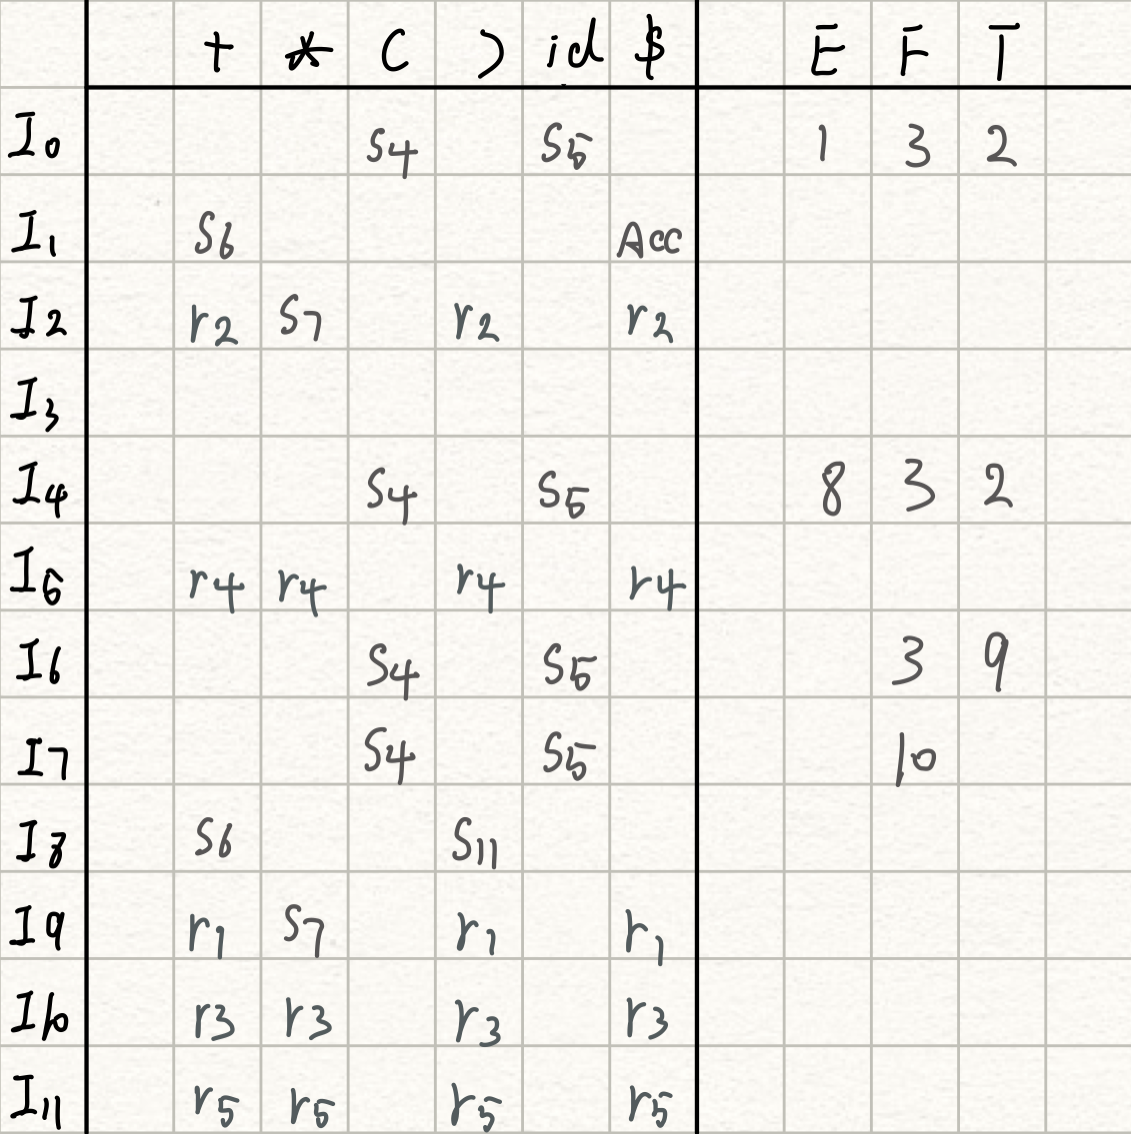 + * ( ) id $ E F T
I0 S4 S5 1 3 2
I1 S6 Acc
I2 r2 S7 r2 r2
I3
I4 S4 S5 8 3 2
I6 r4 r4 r4 r4
I6 S4 S5 3 9
I7 S4 S5 10
I8 S6 S11
I9 r1 S7 r1 r1
I10 r3 r3 r3 r3
I11 r5 r5 r5 r5